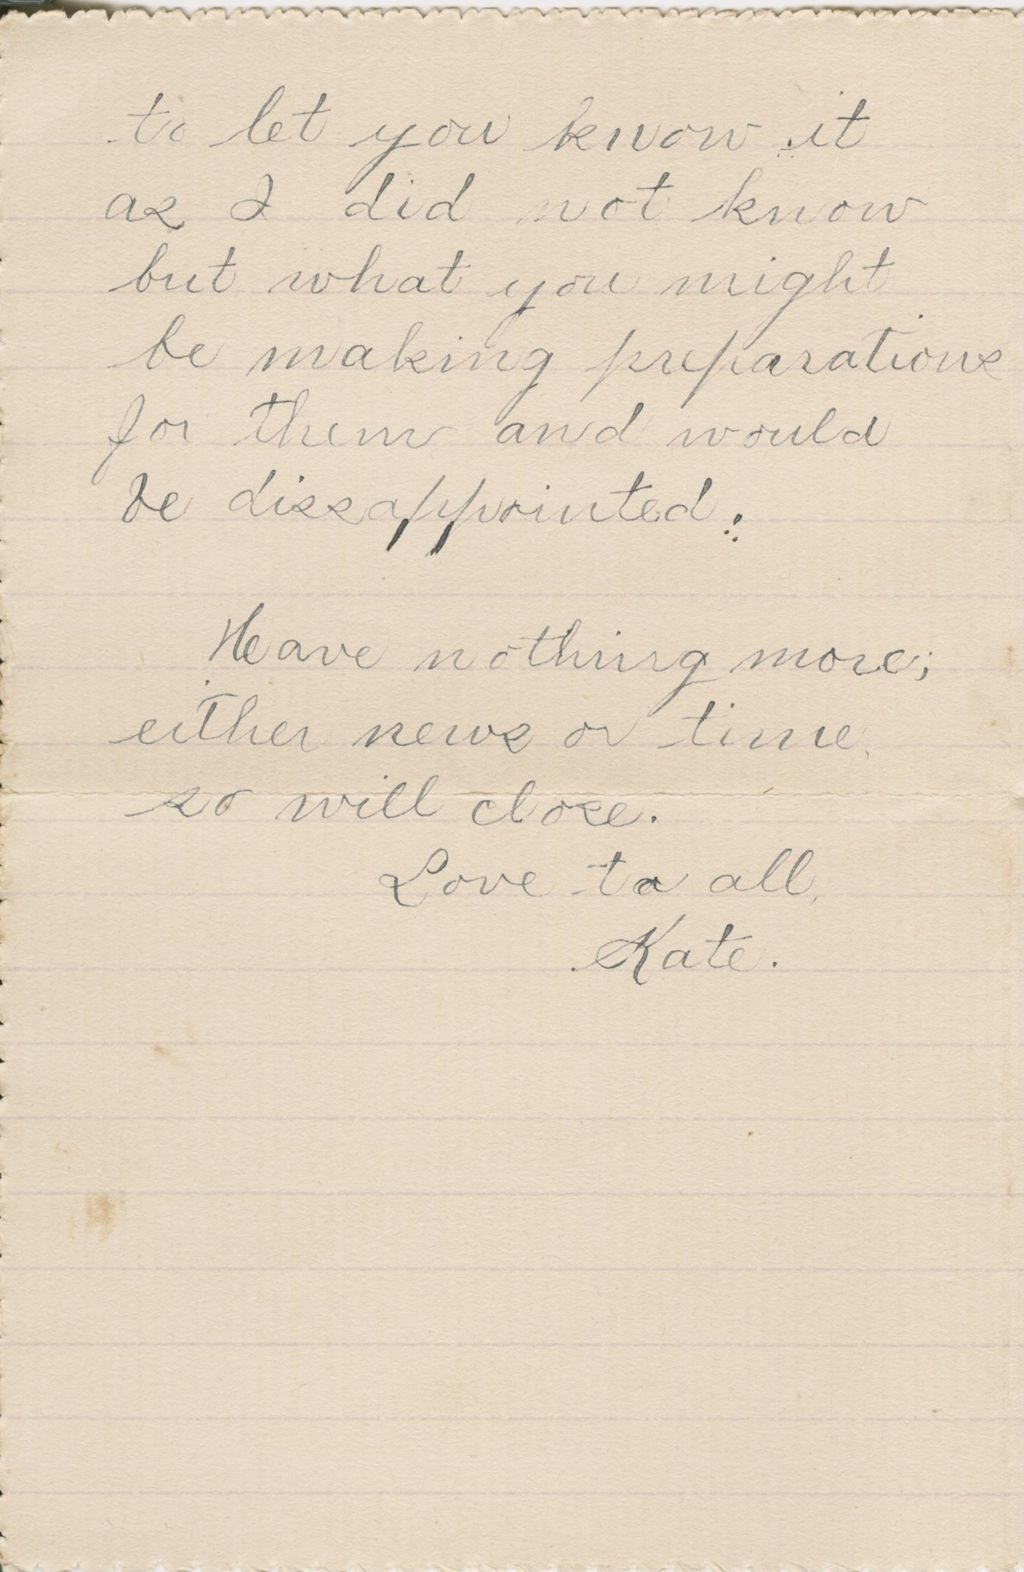 to let you know it
as I did not know
but what you might
be making preparations
for them and would
be dissappointed.
Have nothing more;
either news or time
so will close.
Love to all,
Kate.